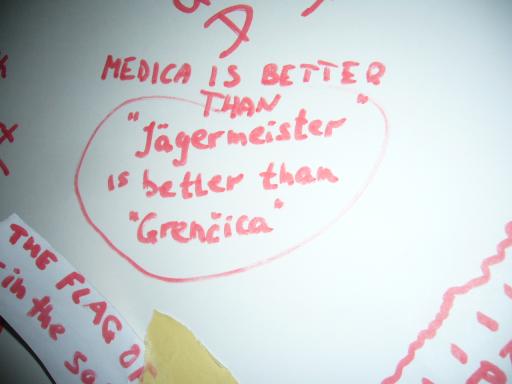 MEDICA IS BETTER
THAN "
"Jägermeister
is better than
"Grenčica"
THE FLAG OF
in the